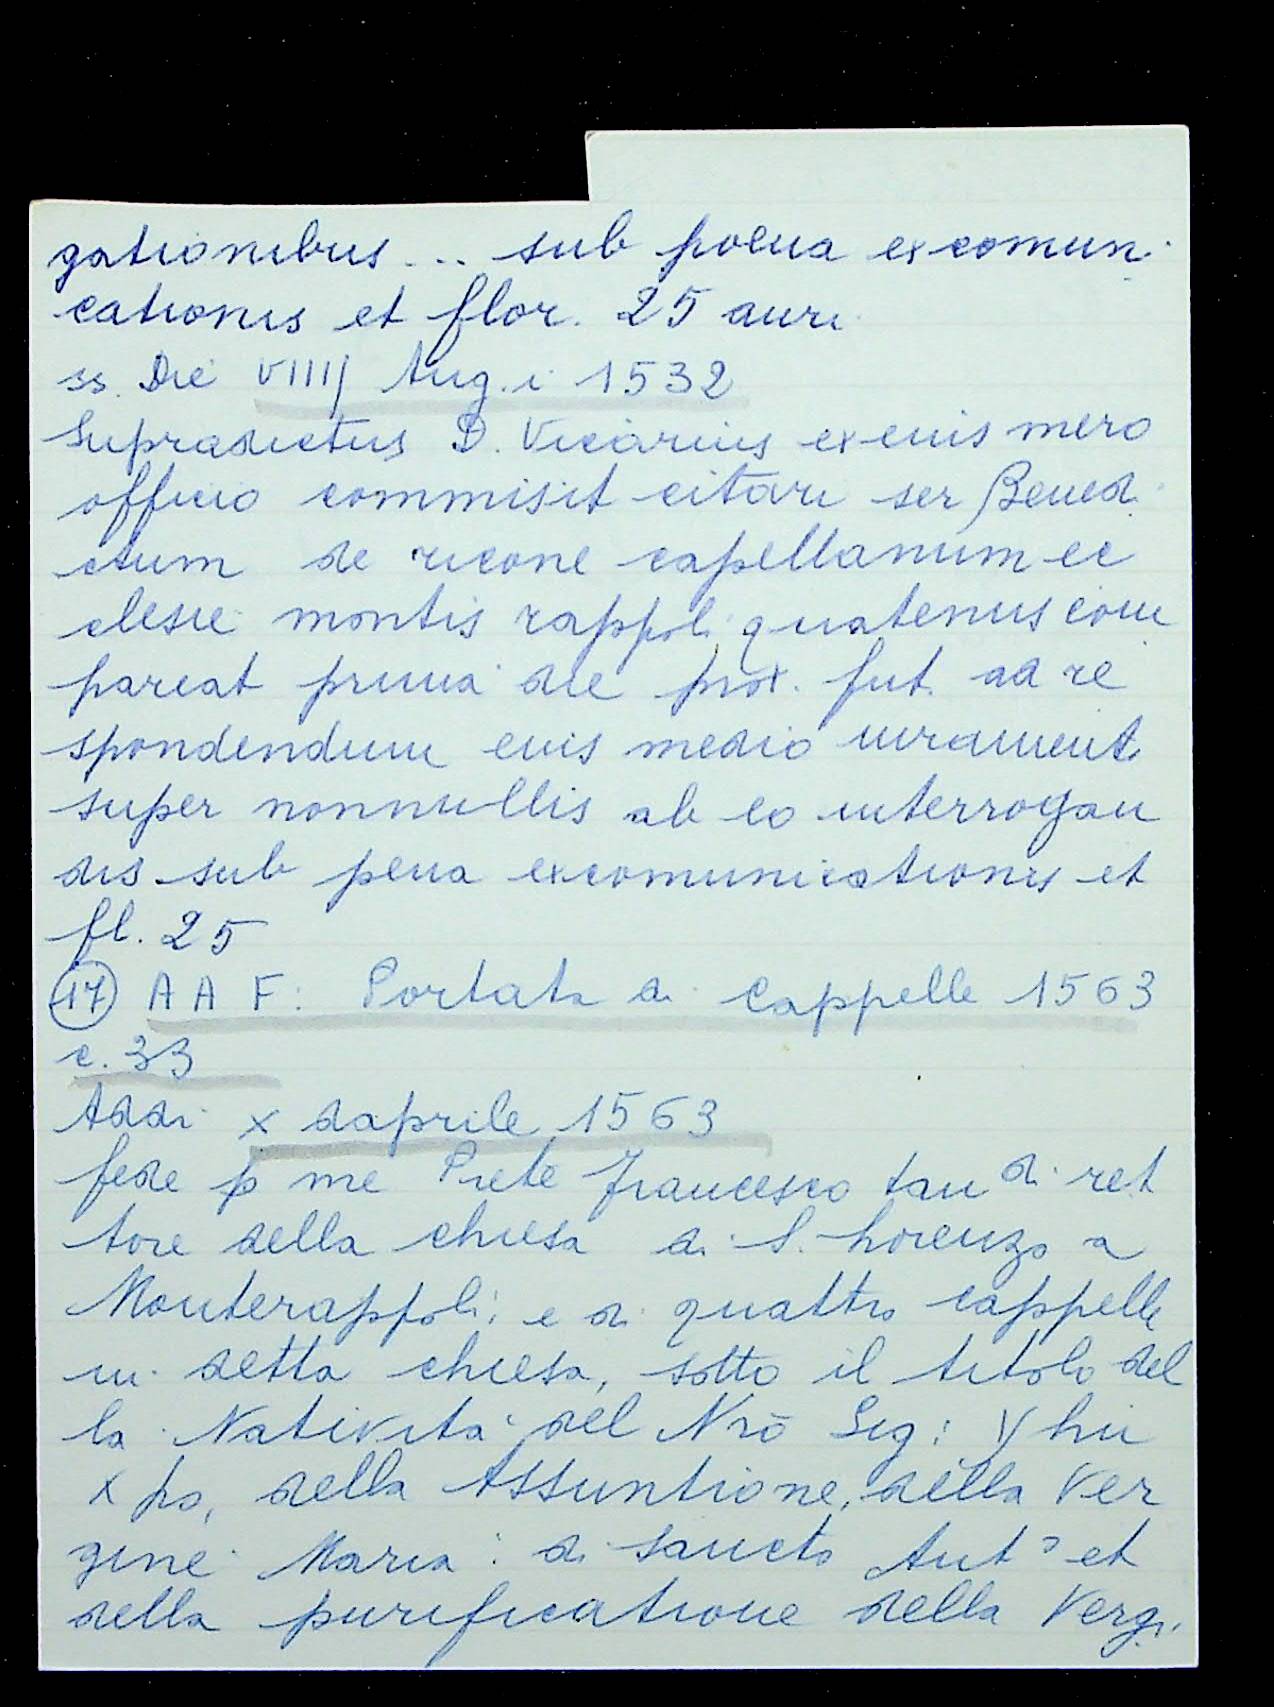 gationibus ... sub poena excomun
cationis et flor. 25 auri
ss. Die VIIII Aug.i 1532
Supradictus D. Vicarius ex eius mero
officio commisit citari ser Bened
ctum de ricone capellanum ec
clesie montis rappoli quatenus com
pareat prima die prox. fut. ad re
spondendum eius medio iurament
super nonnullis ab eo interrogan
dis sub pena excomunicationis et
fl. 25
17 A A F: Portata di Cappelle 1563
c. 33
Addi x daprile 1563
fede p me Prete Francesco tan di ret
tore della chiesa di S. Lorenzo a
Monterappoli; e di quattro cappelle
in detta chiesa, sotto il titolo del
la Natività del Nrō Sig: Yhu
xpo, della Assuntione, della Ver
gine Maria: di sancto Antº et
della purificatione della Verg.